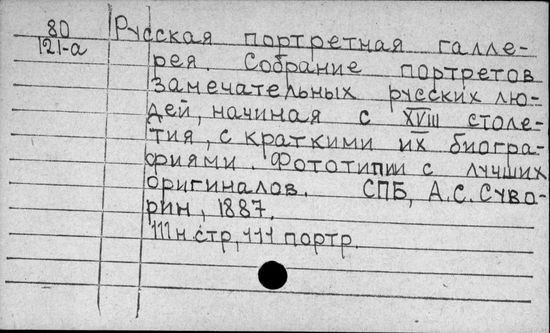 80
121-а
Русская портретная галле-
рея. Собрание портретов
замечательных русских лю-
дей, начиная с XVIII столе-
тия, с краткими их биогра-
фиями. Фототипии с лучших
оригиналов. СПБ, А.С. Суво-
рин, 1887.
111 н.стр, 111 портр.